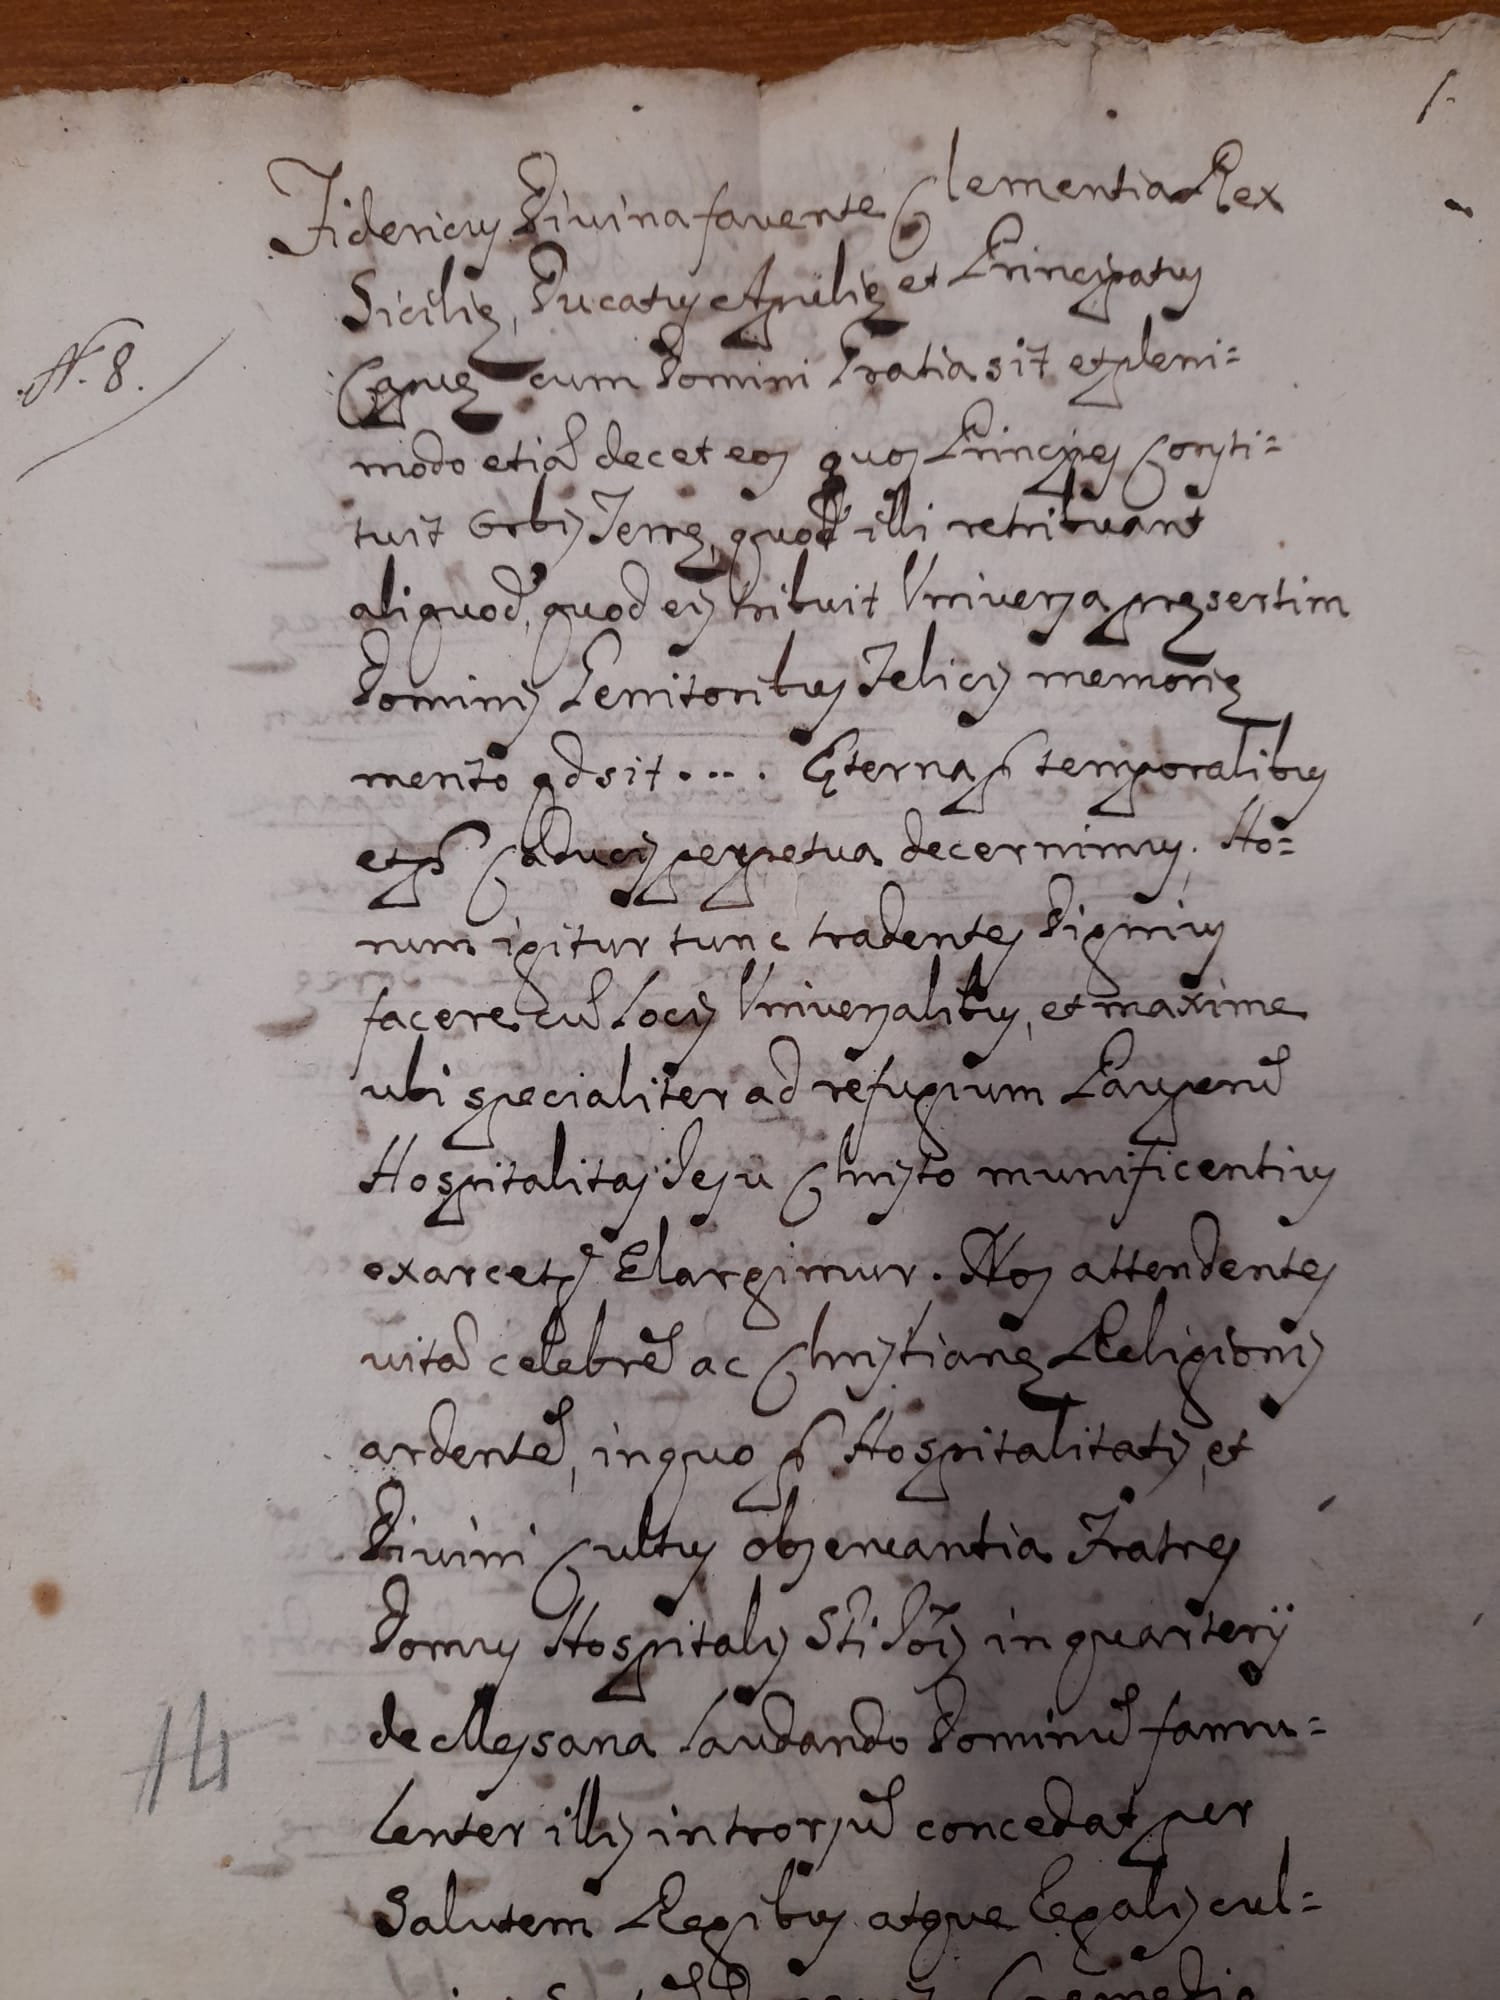 1.
Fidericus Divina favente Clementia Rex
N. 8.
Sicilię, Ducatus Apulię et Principatus
Capuę cum Domini Gratia sit et pleni=
modo etiã decet eos quos Principes Consti=
tuit Orbis Terrę, quod illi retribuant
aliquod, quod eis tribuit Universa pręsertim
Dominis Genitoribus Felicis memorię
merito adsit .... Ęterna ꝑ temporalibus
et ꝓ Caducis perpetua decernimus. Ho=
rum igitur tunc tradentes Dignius
facere cũ Locis Universalibus, et maxime
ubi specialiter ad refugium Pauperũ
Hospitalitas Jesu Christo munificentius
Elargimur. Nos attendentes
vitã celebrẽ ac Christianę Religionis
ardentẽ, in quo ꝑ Hospitalitatis, et
Divini Cultus observantia Fratres
Domus Hospitalis Sti Jois in quarterij
de Messana Laudando Dominũ famu=
lenter illis introrsũ concedat per
Salutem Regibus atque legalis cul=
14